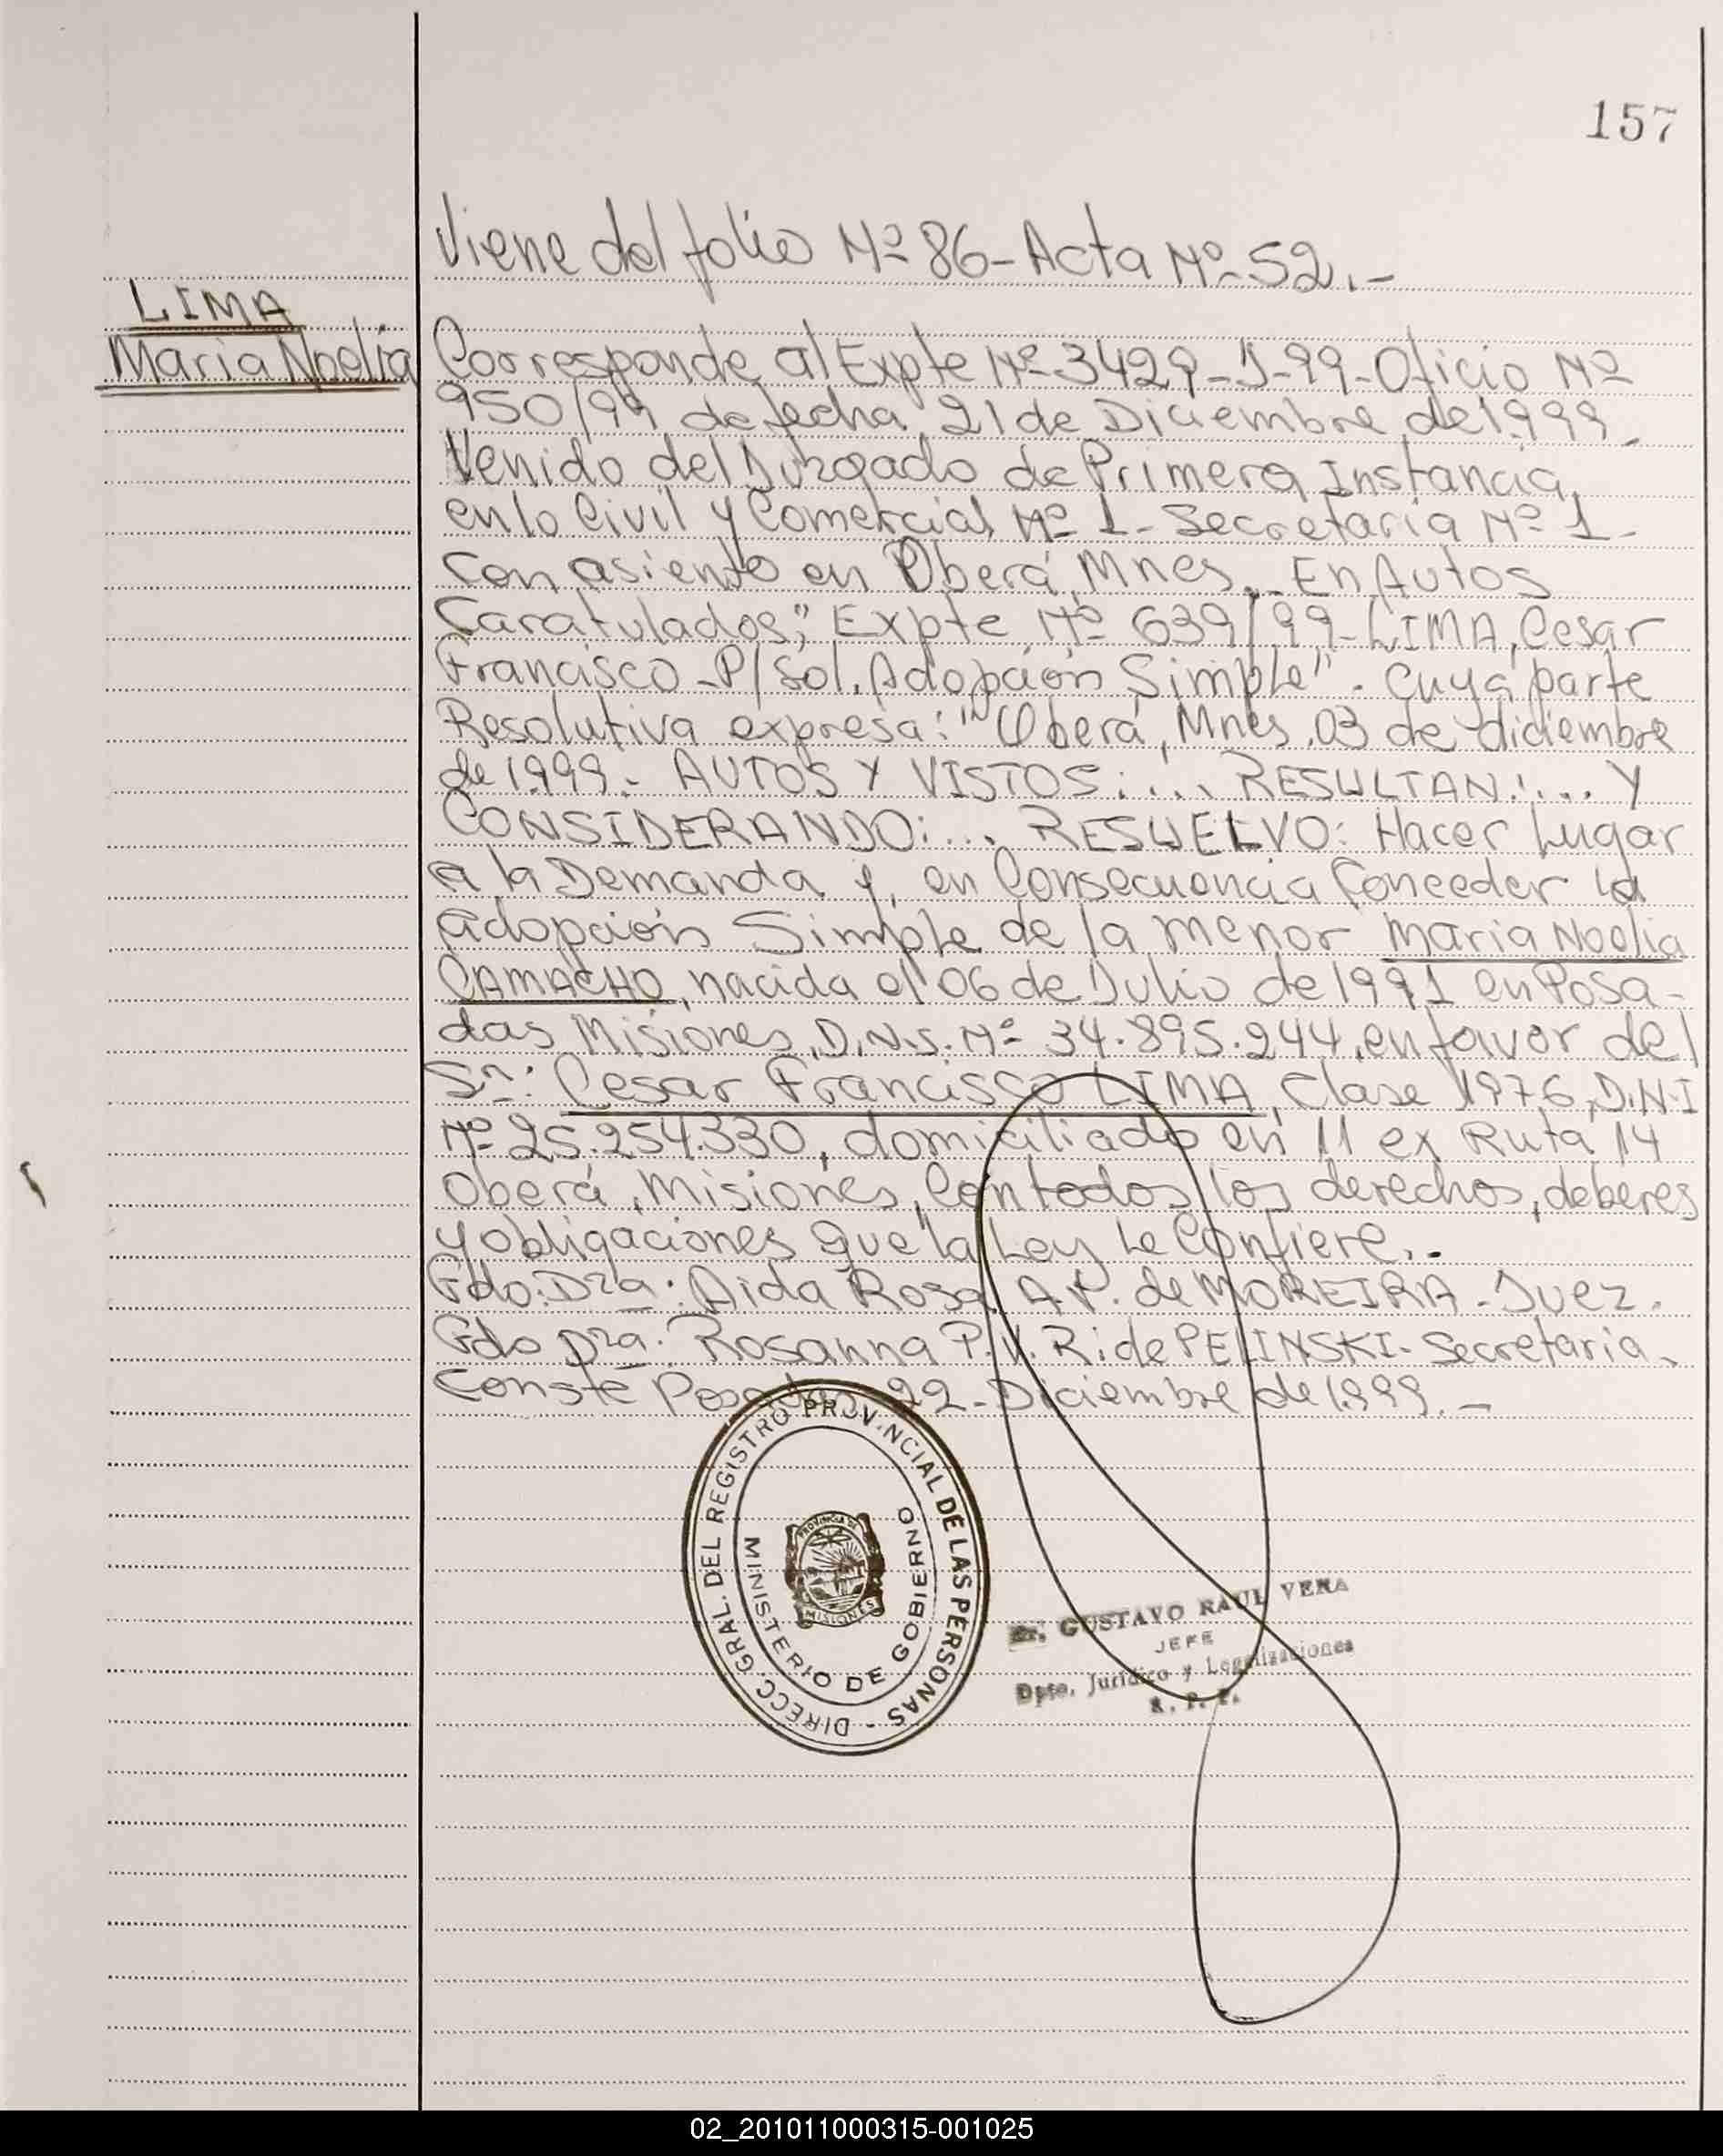 157
Viene del folio Nº 86 - Acta Nº 52.-
LIMA
Maria Noelia
Corresponde al Expte Nº 3429-J-99-Oficio Nº
950/99 de fecha 21 de Diciembre de 1.999.
Venido del Juzgado de Primera Instancia
en lo Civil y Comercial Nº 1 - Secretaria Nº 1-
Con asiento en Oberá, Mnes. En Autos
Caratulados; "Expte Nº 639/99-LIMA, Cesar
Francisco - P/ Sol. Adopción Simple". Cuya parte
Resolutiva expresa: "Oberá, Mnes, 03 de diciembre
de 1.999.- AUTOS Y VISTOS:... RESULTAN:... Y
CONSIDERANDO:... RESUELVO: Hacer Lugar
a la Demanda y, en Consecuencia Conceder la
adopción Simple de la menor Maria Noelia
CAMACHO, nacida el 06 de Julio de 1991 en Posa-
das Misiones, D.N.I. Nº 34.895.244, en favor del
Sr: Cesar Francisco LIMA, Clase 1976, D.N.I
Nº 25.254.330, domiciliado en 11 ex Ruta 14
Oberá, Misiones, Con todos los derechos, deberes
y obligaciones que la Ley Le Confiere..
Fdo: Dra: Aida Rosa A.P. de MOREIRA - Juez.
Fdo Dra: Rosanna P.V. R. de PELINSKI - Secretaria.
Conste Posadas 22 - Diciembre de 1.999.-
DIRECC. GRAL. DEL REGISTRO PROVINCIAL DE LAS PERSONAS -
MINISTERIO DE GOBIERNO
PROVINCIA DE
MISIONES
Dr. GUSTAVO RAUL VERA
JEFE
Dpto. Jurídico y Legalizaciones
R. P. P.
02_201011000315-001025